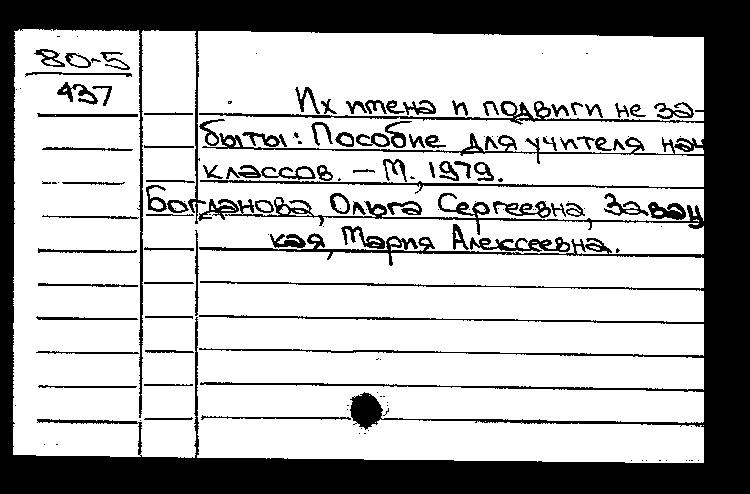 80-5
437
Их имена и подвиги не за-
быты: Пособие для учителя нач
классов. – М., 1979.
Богданова, Ольга Сергеевна, Завац
кая, Мария Алексеевна.